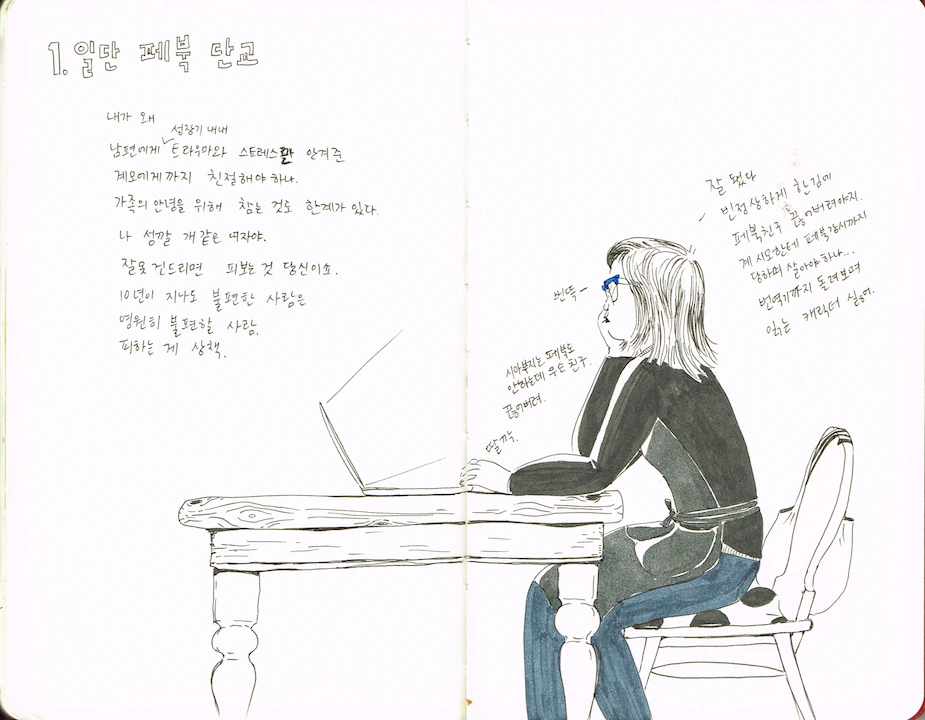 1. 일단 페북 단교
내가 왜
성장기 내내
남편에게 트라우마와 스트레스만 안겨준
계모에게까지 친절해야 하나.
가족의 안녕을 위해 참는 것도 한계가 있다.
나 성깔 개같은 여자야.
잘못 건드리면 피보는 것 당신이쇼.
10년이 지나도 불편한 사람은
영원히 불편할 사람.
피하는 게 상책.
잘 됐다
빈정상하게 한김에
페북친구 끊어버려야지.
계시모한테 페북감시까지
당하며 살아야 하나...
번역기까지 돌려보며
읽는 캐릭터 싫어.
번뜩
시아부지는 페북도
안하는데 무슨 친구.
끊어버려.
딸깍.